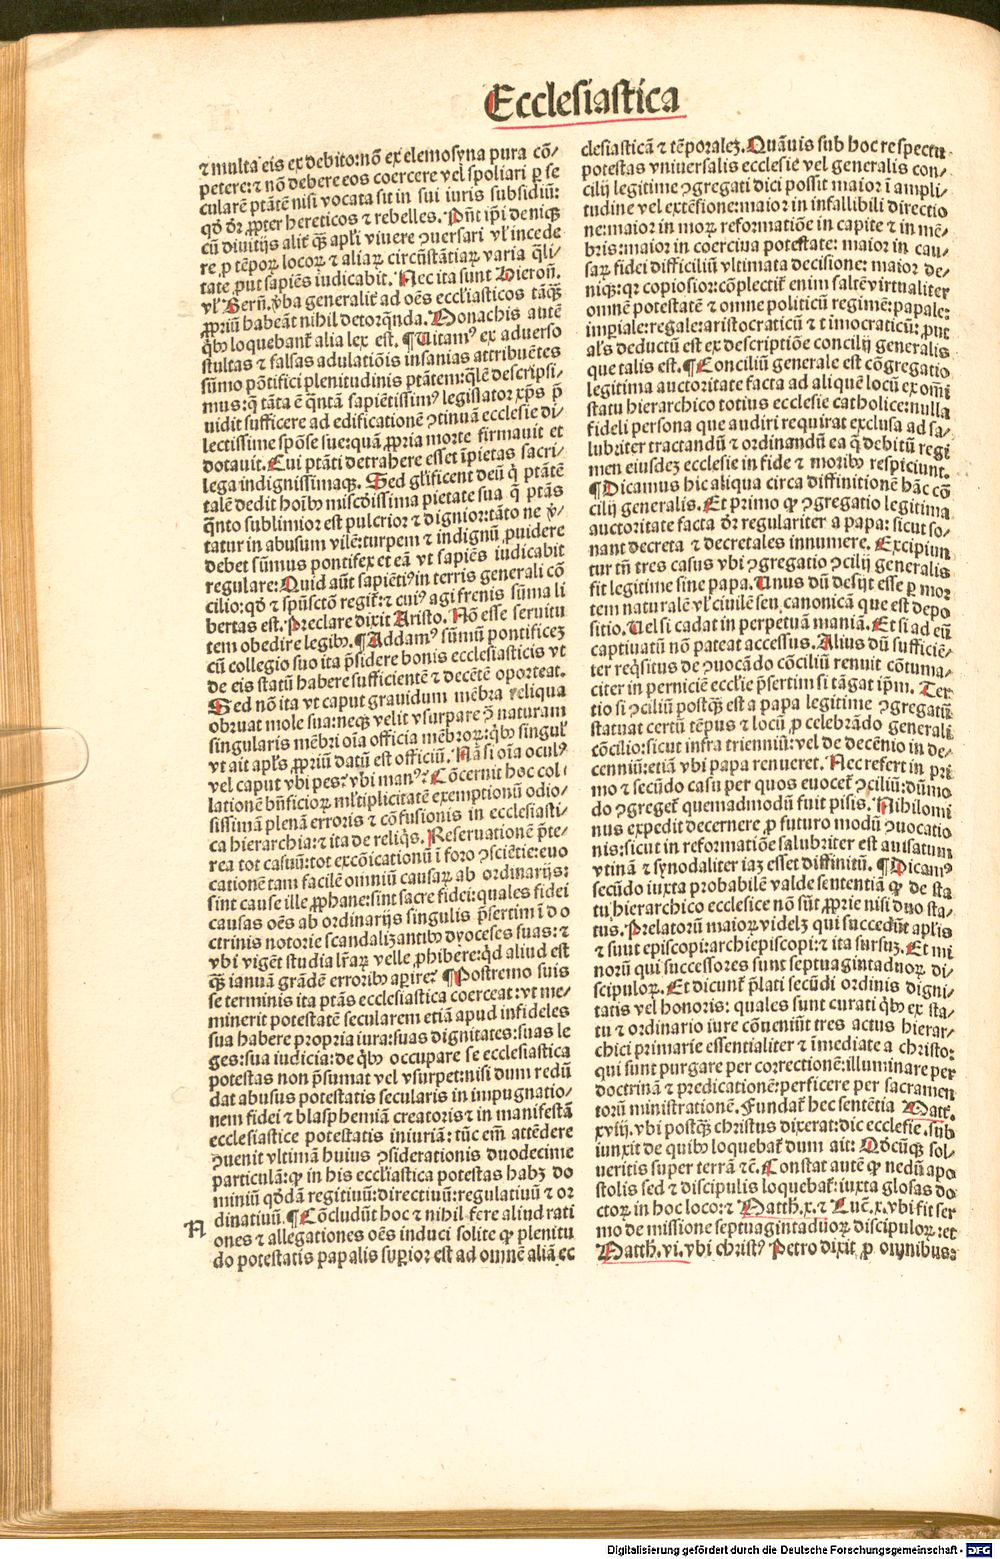 Ecclesiastica
⁊ multa eis ex debito: nõ ex elemosyna pura cõ/
petere: ⁊ nõ debere eos coercere vel spoliari ꝑ se
cularẽ ptãtẽ nisi vocata sit in sui iuris subsidiũ:
qđ ðr ꝓpter hereticos ⁊ rebelles. Pñt ip̃i deniqꝫ
cũ diuitijs alit̃ qꝫ̃ apl̃i viuere ꝯuersari vl̃ incede
re ꝓ tẽpoꝝ locoꝝ ⁊ aliaꝝ circũstãtiaꝝ varia q̃li/
tate ꝓut sapiẽs iudicabit. Nec ita sunt Hieroñ.
vl̃ Berñ. v̾ba generalit̃ ad oẽs eccl̃iasticos tãqꝫ̃
ꝓpriũ habeãt nihil detorq̃nda. Monachis autẽ
q̇bꝰ loquebant̃ alia lex est. ¶ Uitamꝰ ex aduerso
stultas ⁊ falsas adulatiõis insanias attribuẽtes
sũmo põtifici plenitudinis ptãtem: q̃lẽ descripsi/
mus: q̃ tãta ẽ q̃ntã sapiẽtissimꝰ legislator xp̃s p̃
uidit sufficere ad edificationẽ ꝯtinuã ecclesie di/
lectissime spõse sue: quã ꝓpria morte firmauit et
dotauit. Cui ptãti detrahere esset ĩpietas sacri/
lega indignissimaqꝫ. Sed gl̃ificent deũ q̇ ptãtẽ
talẽ dedit hoĩbꝰ misc̾dissima pietate sua q̃ ptãs
q̃nto sublimior est pulcrior ⁊ dignior: tãto ne v̾/
tatur in abusum vilẽ: turpem ⁊ indignũ ꝓuidere
debet sũmus pontifex et eã vt sapiẽs iudicabit
regulare: Quid aũt sapiẽtiꝰ in terris generali cõ
cilio: qđ ⁊ spũsctõ regit̃: ⁊ cuiꝰ agi frenis sũma li
bertas est. Preclare dixit Aristo. Nõ esse seruitu
tem obedire legibꝰ. ¶ Addamꝰ sũmũ pontificeꝫ
cũ collegio suo ita p̃sidere bonis ecclesiasticis vt
de eis statũ habere sufficientẽ ⁊ decẽtẽ oporteat.
Sed nõ ita vt caput grauidum mẽbra reliqua
obruat mole sua: neqꝫ velit vsurpare ꝯ̃ naturam
singularis mẽbri oĩa officia mẽbroꝝ: q̇bꝰ singul̃
vt ait apl̃s ꝓpriũ datũ est officiũ. Nã si oĩa oculꝰ
vel caput vbi pes? vbi manꝰ? Cõcernit hoc col/
lationẽ bñficioꝝ ml̃tiplicitatẽ exemptionũ odio/
sissimã plenã erroris ⁊ cõfusionis in ecclesiasti/
ca hierarchia: ⁊ ita de reliq̇s. Reseruationẽ p̃te/
rea tot casuũ: tot excõicationũ ĩ foro ꝯsciẽtie: euo
cationẽ tam facilẽ omniũ causaꝝ ab ordinarijs:
sint cause ille ꝓphane: sint sacre fidei: quales fidei
causas oẽs ab ordinarijs singulis p̃sertim ĩ do
ctrinis notorie scandalizantibꝰ dyoceses suas: ⁊
vbi vigẽt studia lr̃aꝝ velle ꝓhibere: qđ aliud est
qꝫ̃ ianuã grãdẽ erroribꝰ aꝑire? ¶ Postremo suis
se terminis ita ptãs ecclesiastica coerceat: vt me/
minerit potestatẽ secularem etiã apud infideles
sua habere propria iura: suas dignitates: suas le
ges: sua iudicia: de q̇bꝰ occupare se ecclesiastica
potestas non p̃sumat vel vsurpet: nisi dum redũ
dat abusus potestatis secularis in impugnatio/
nem fidei ⁊ blasphemiã creatoris ⁊ in manifestã
ecclesiastice potestatis iniuriã: tũc em̃ attẽdere
ꝯuenit vltimã huius ꝯsiderationis duodecime
particulã: ꝙ in his eccl̃iastica potestas habꝫ do
miniũ qđdã regitiuũ: directiuũ: regulatiuũ ⁊ or
dinatiuũ. ¶ Cõcludũt hoc ⁊ nihil fere aliud rati
ones ⁊ allegationes oẽs induci solite ꝙ plenitu
do potestatis papalis suꝑior est ad omnẽ aliã ec
A
clesiasticã ⁊ tẽporaleꝫ. Quãuis sub hoc respectu
potestas vniuersalis ecclesie vel generalis con/
cilij legitime ꝯgregati dici possit maior ĩ ampli/
tudine vel extẽsione: maior in infallibili directio
ne: maior in moꝝ reformatiõe in capite ⁊ in mẽ/
bris: maior in coerciua potestate: maior in cau/
saꝝ fidei difficiliũ vltimata decisione: maior de/
niqꝫ: qꝛ copiosior: cõplectit̃ enim saltẽ virtualiter
omnẽ potestatẽ ⁊ omne politicũ regimẽ: papale:
imꝑiale: regale: aristocraticũ ⁊ timocraticũ: ꝓut
al̃s deductũ est ex descriptiõe concilij generalis
que talis est. ¶ Conciliũ generale est cõgregatio
legitima auctoritate facta ad aliquẽ locũ ex om̃i
statu hierarchico totius ecclesie catholice: nulla
fideli persona que audiri requirat exclusa ad sa/
lubriter tractandũ ⁊ ordinandũ ea q̃ debitũ regi
men eiusdeꝫ ecclesie in fide ⁊ moribꝰ respiciunt.
¶ Dicamus hic aliqua circa diffinitionẽ hãc cõ
cilij generalis. Et primo ꝙ ꝯgregatio legitima
auctoritate facta ðr regulariter a papa: sicut so/
nant decreta ⁊ decretales innumere. Excipiun
tur tñ tres casus vbi ꝯgregatio ꝯcilij generalis
fit legitime sine papa. Unus dũ desijt esse ꝑ mor
tem naturalẽ vl̃ ciuilẽ seu canonicã que est depo
sitio. Uel si cadat in perpetuã maniã. Et si ad eũ
captiuatũ nõ pateat accessus. Alius dũ sufficiẽ/
ter reqͥsitus de ꝯuocãdo cõciliũ renuit cõtuma/
citer in perniciẽ eccl̃ie p̃sertim si tãgat ip̃m. Ter
tio si ꝯciliũ postqꝫ̃ est a papa legitime ꝯgregatũ
statuat certũ tẽpus ⁊ locũ ꝓ celebrãdo generali
cõcilio: sicut infra trienniũ: vel de decẽnio in de/
cenniũ: etiã vbi papa renueret. Nec refert in pri
mo ⁊ secũdo casu per quos euocet̃ ꝯciliũ: dũmo
do ꝯgreget̃ quemadmodũ fuit pisis. Nihilomi
nus expedit decernere ꝓ futuro modũ ꝯuocatio
nis: sicut in reformatiõe salubriter est auisatum
vtinã ⁊ synodaliter iaꝫ esset diffinitũ. ¶ Dicamꝰ
secũdo iuxta probabilẽ valde sententiã ꝙ de sta
tu hierarchico ecclesice nõ sũt ꝓprie nisi duo sta/
tus. Prelatorũ maioꝝ videlꝫ qui succedũt apl̃is
⁊ sunt episcopi: archiepiscopi: ⁊ ita sursuꝫ. Et mi
norũ qui successores sunt septuagintaduoꝝ di/
scipuloꝝ. Et dicunt̃ p̃lati secũdi ordinis digni/
tatis vel honoris: quales sunt curati q̇bꝰ ex sta/
tu ⁊ ordinario iure cõueniũt tres actus hierar/
chici primarie essentialiter ⁊ ĩmediate a christo:
qui sunt purgare per correctionẽ: illuminare per
doctrinã ⁊ predicationẽ: perficere per sacramen
torũ ministrationẽ. Fundat̃ hec sentẽtia Matt̃.
xviij. vbi postqꝫ̃ christus dixerat: dic ecclesie. sub
iunxit de quibꝰ loquebat̃ dum ait: Qđcũqꝫ sol/
ueritis super terrã ⁊c̃. Constat autẽ ꝙ nedũ apo
stolis sed ⁊ discipulis loquebat̃: iuxta glosas do
ctoꝝ in hoc loco: ⁊ Matth̃. x. ⁊ Luc̃. x. vbi fit ser
mo de missione septuagintaduoꝝ discipuloꝝ: et
Matth̃. vi. vbi christꝰ Petro dixit ꝓ omnibus:
Digitalisierung gefördert durch die Deutsche Forschungsgemeinschaft - DFG